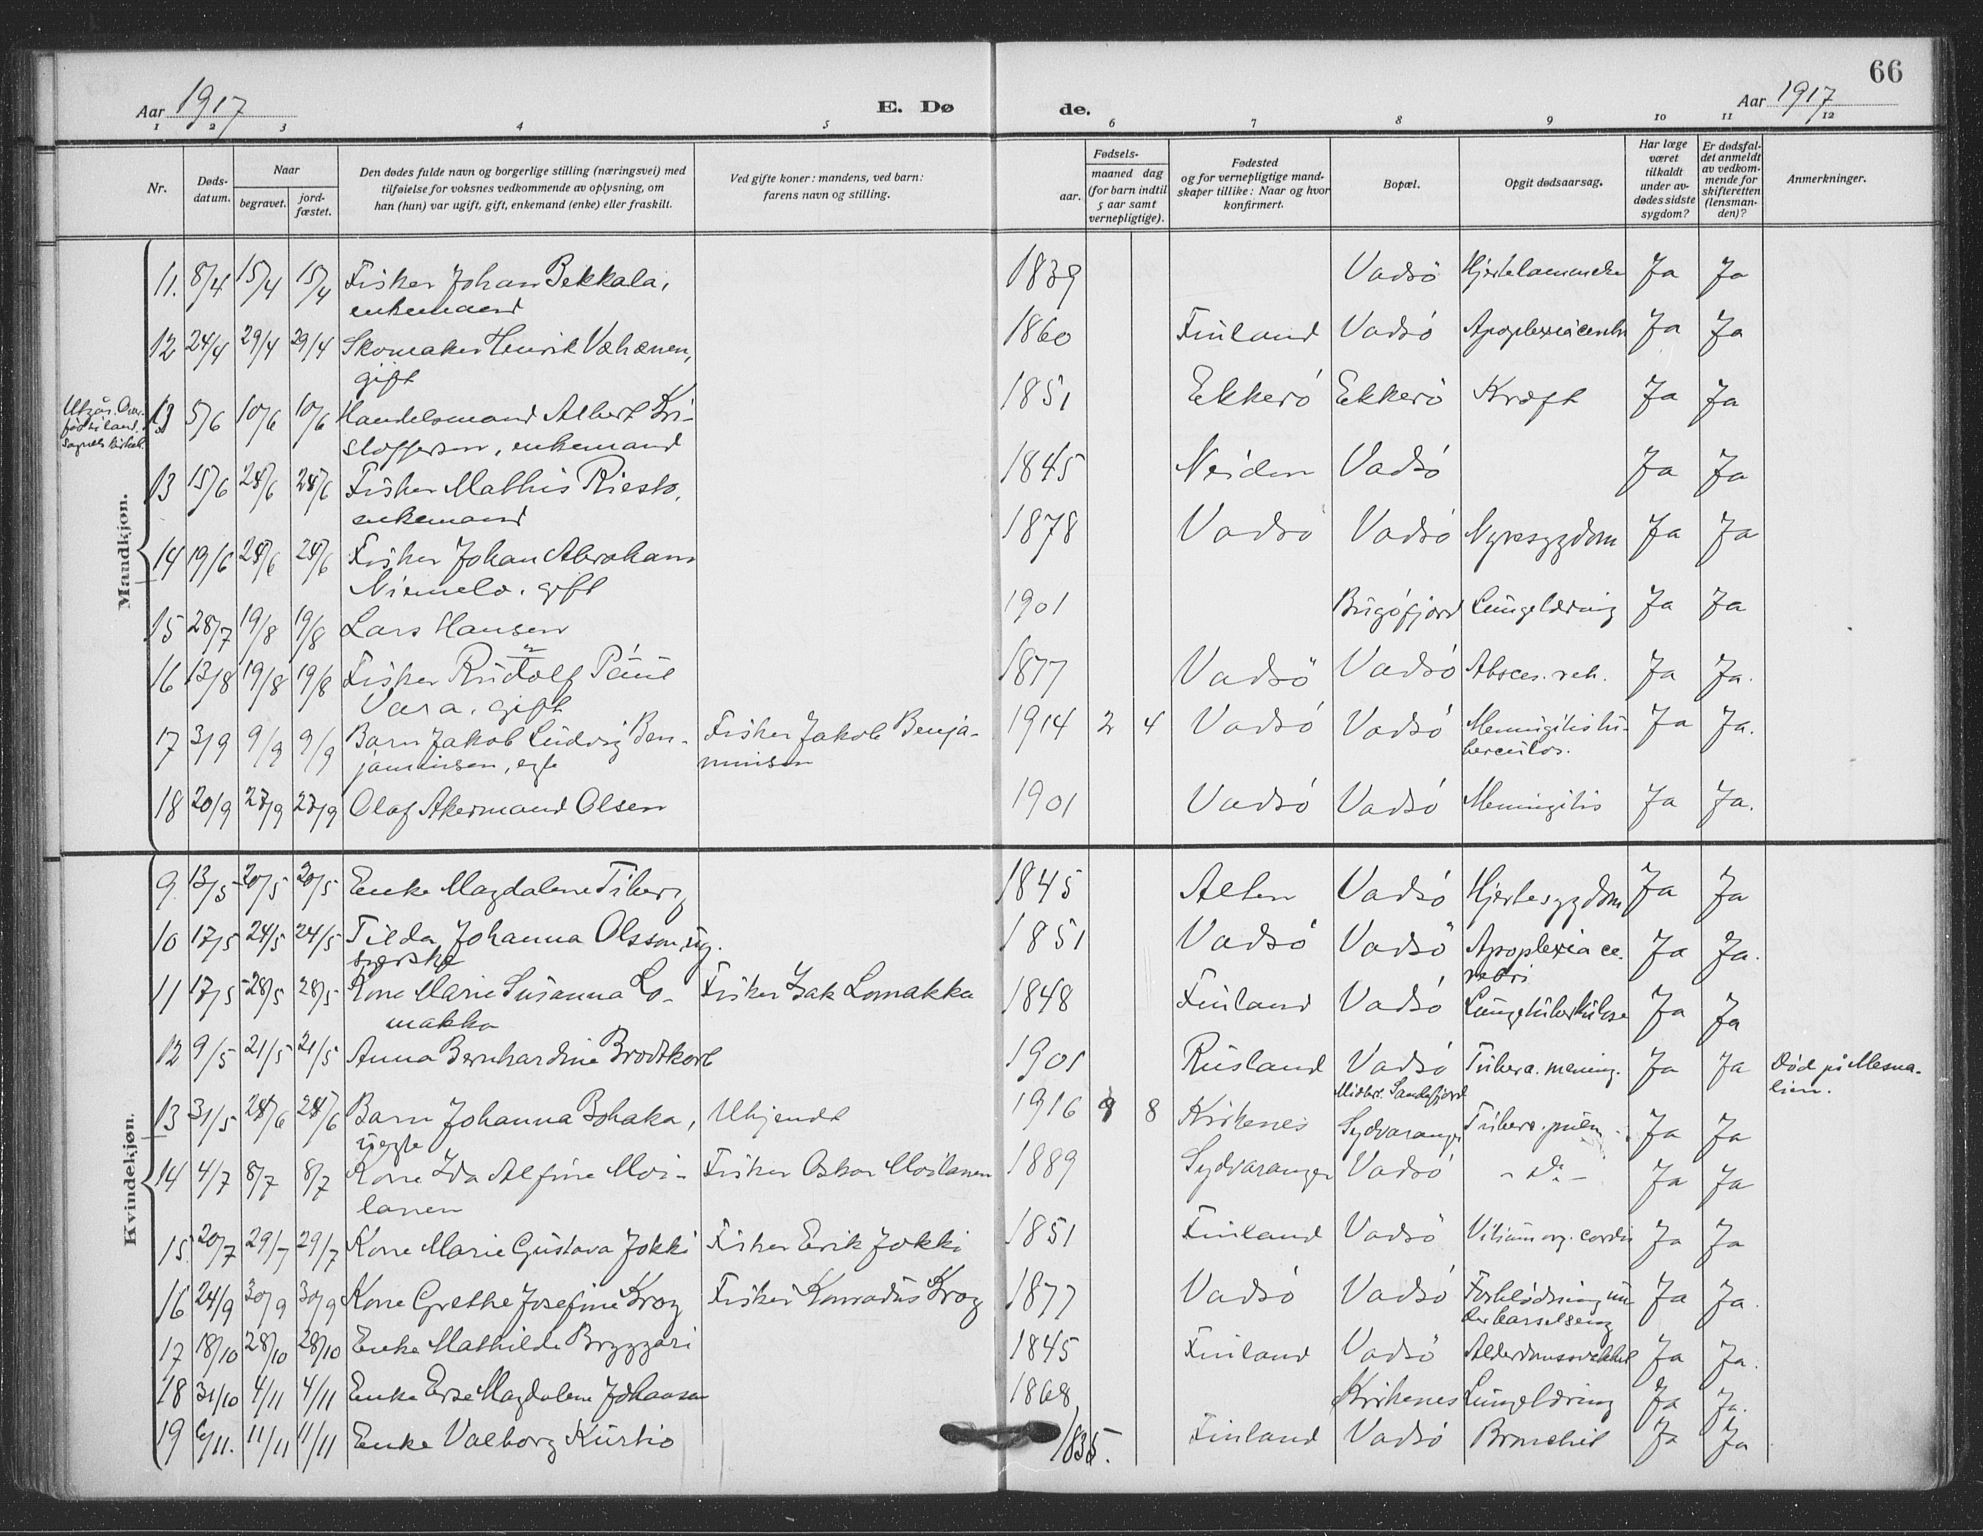 66
Aar 1917
E. Dø
de.
Aar 1917
1 2 3 4 5 6 7 8 9 10 11 12
Nr.
Døds-
datum.
Naar
begravet.
jord-
fæstet.
Den dødes fulde navn og borgerlige stilling (næringsvei) med
tilføielse for voksnes vedkommende av oplysning, om
han (hun) var ugift, gift, enkemand (enke) eller fraskilt.
Ved gifte koner: mandens, ved barn:
farens navn og stilling.
Fødsels-
aar.
maaned dag
(for barn indtil
5 aar samt
vernepligtige).
Fødested
og for vernepligtige mand-
skaper tillike: Naar og hvor
konfirmert.
Bopæl.
Opgit dødsaarsag.
Har læge
været
tilkaldt
under av-
dødes sidste
sygdom?
Er dødsfal-
det anmeldt
av vedkom-
mende for
skifteretten
(lensman-
den)?
Anmerkninger.
Mandkjøn.
11. 8/4 15/4 15/4 Fisker Johan Pekkala, 1839 Vadsö Ja Ja
enkemand
12 24/4 29/4 29/4 Skomaker Henrik Væhænen, 1860 Finland Vadsö Apoplexia cerebri Ja Ja
gift
13 5/6 10/6 10/6 Handelsmand Albert Kri- 1851 Ekkerö Ekkerö Kræft Ja Ja
stoffersen, enkemand
13 15/6 24/6 24/6 Fisker Mathis Riesto, 1845 Neiden Vadsö Ja Ja
enkemand
14 19/6 24/6 24/6 Fisker Johan Abraham 1878 Vadsö Vadsö Nyresygdom Ja Ja
Niemelæ, gift
15 28/7 19/8 19/8 Lars Hansen 1901 Bugöfjord Lungetæring Ja Ja
16 13/8 19/8 19/8 Fisker Rudolf Paul 1877 Vadsö Vadsö Absces. reh. Ja Ja.
Vara, gift
17 3/9 9/9 9/9 Barn Jakob Ludvig Ben- Fisker Jakob Benja- 1914 2 4 Vadsö Vadsö Meningitis tu- Ja Ja.
jaminsen, egte minsen berculos.
18 20/9 27/9 27/9 Olaf Akermand Olsen 1901 Vadsö Vadsö Meningitis Ja Ja.
Kvindekjøn.
9 13/5 20/5 20/5 Enke Magdalene Tiberg 1845 Alten Vadsö Hjertesygdom Ja Ja
10 17/5 24/5 24/5 Tilda Johanna Olsson, ug. 1851 Vadsö Vadsö Apoplexia ce- Ja Ja.
rebri
11 17/5 28/5 28/5 Kone Marie Susanna Lo- Fisker Isak Lomakka 1848 Finland Vadsö Lungetuberkulose Ja Ja
makka
12 9/5 21/5 21/5 Anna Bernhardine Brodtkorb 1901 Rusland Vadsö Tuberc. mening. Ja Ja Död på Mesna-
lien.
13 31/5 24/6 24/6 Barn Johanna Bshaka, Ubjendt 1916 9 8 Kirkenes Sydvaranger Ja Ja
uegte
14 4/7 8/7 8/7 Kone Ida Alfine Moi- Fisker Oskar Moilanen 1889 Sydvaranger Vadsö - do - Ja Ja
lanen
15. 20/7 29/7 29/7 Kone Marie Gustava Jokki Fisker Erik Jokki 1851 Finland Vadsö Vitium org. cordis Ja Ja
16 24/9 30/9 30/9 Kone Grethe Josefine Krog Fisker Konradus Krog 1877 Vadsö Vadsö Forblödning un- Ja Ja.
der barselseng
17 18/10 28/10 28/10 Enke Mathilde Bryggari 1845 Finland Vadsö Alderdomssvakhet Ja Ja.
18 31/10 4/11 4/11 Enke Magdalene Johansen 1868 Kirkenes Lungetæring Ja Ja.
19 6/11. 11/11 11/11 Enke Valborg Kurtio 1835. Finland Vadsö Bronchit Ja Ja